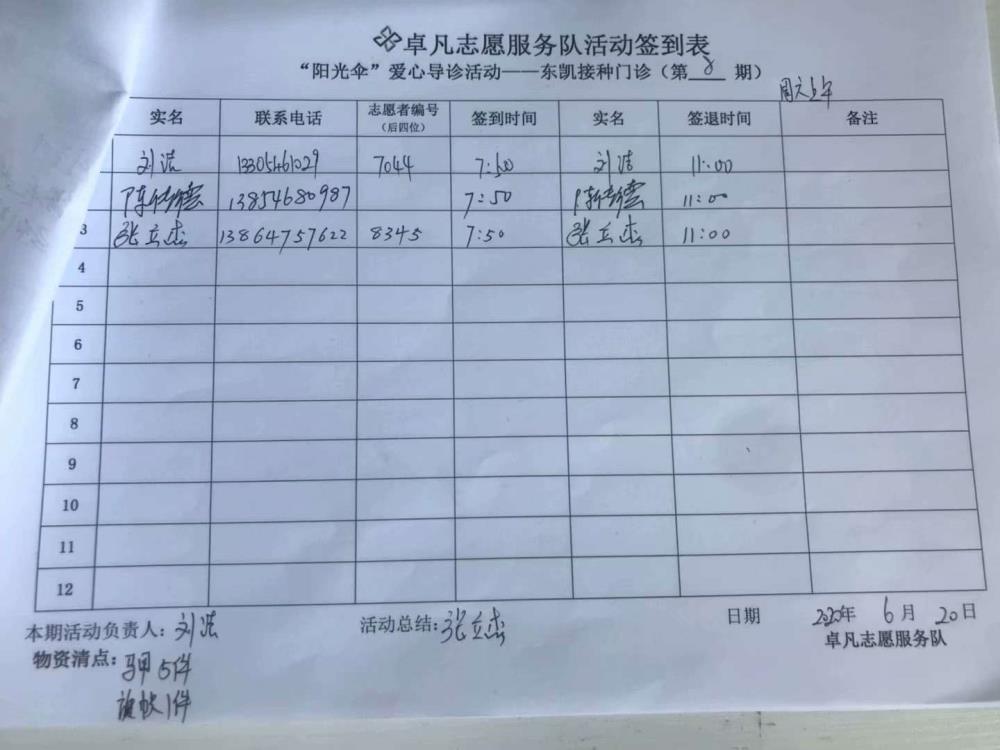 卓凡志愿服务队活动签到表
“阳光伞”爱心导诊活动——东凯接种门诊（第 8 期）
周六上午
实名 联系电话 志愿者编号（后四位） 签到时间 实名 签退时间 备注
刘洁 13305461029 7044 7:50 刘洁 11:00
13854680987 7:50 11:00
3 张立杰 13864757622 8345 7:50 张立杰 11:00
4
5
6
7
8
9
10
11
12
本期活动负责人：刘洁 活动总结：张立杰 日期 2020年 6月 20日
物资清点：马甲5件 卓凡志愿服务队
旗帜1件